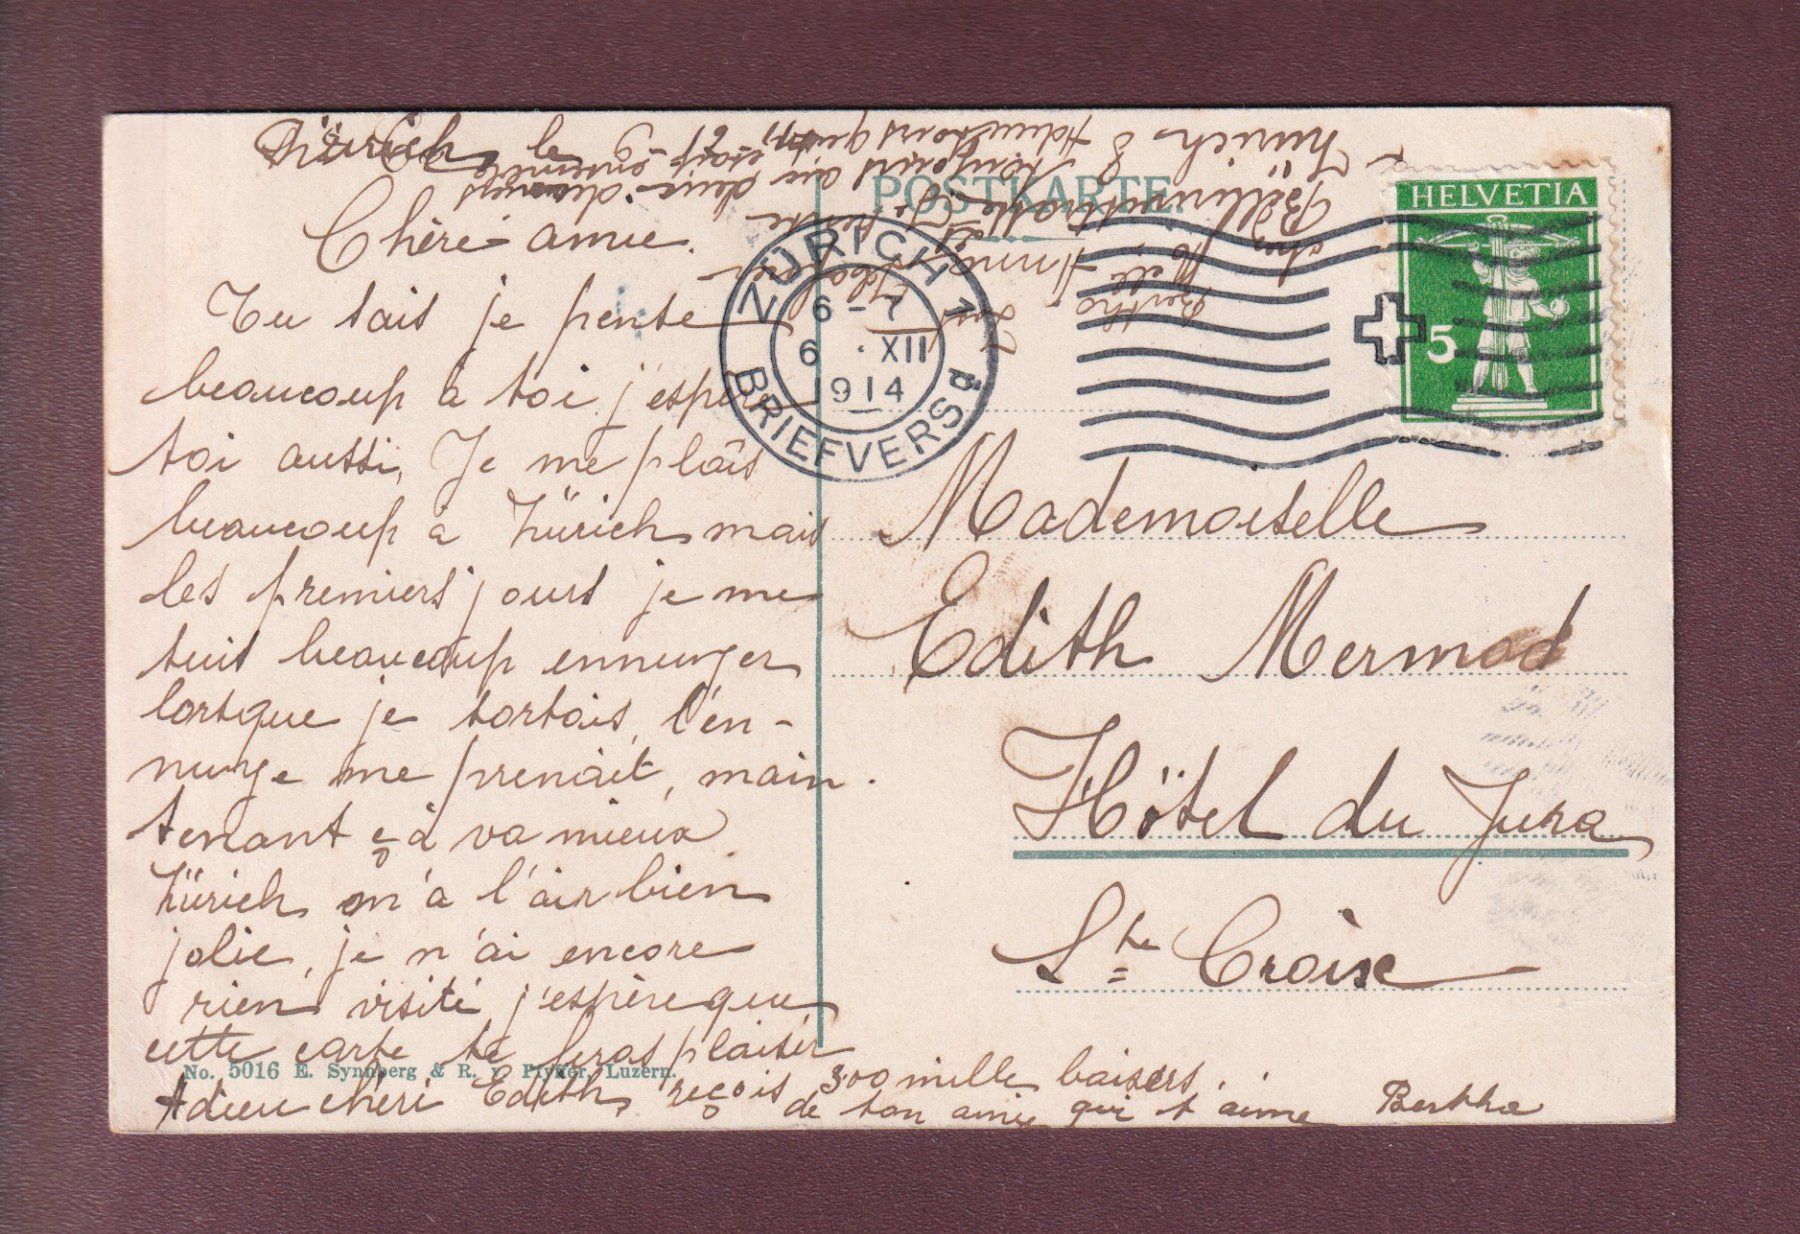 Zürich le 6
Chère amie.
Tu sais je pense
beaucoup à toi j'espère
toi aussi, Je me plais
beaucoup à Zürich mais
les premiers jours je me
suis beaucoup ennuyer
lorsque je sortais, l'en-
nuye me prenait, main-
tenant çà va mieux
Zürich m'a l'air bien
jolie, je n'ai encore
rien visité, j'espère que
cette carte te feras plaisir
Adieu chéri Edith, reçois 300 mille baisers.
de ton amie qui t'aime Bertha
POSTKARTE.
ZÜRICH 1
6-7
6. XII
1914
BRIEFVERSd.
HELVETIA
5
Mademoiselle
Edith Mermod
Hôtel du Jura
Ste Croix
No. 5016 E. Synnberg & R. v. Pfyffer, Luzern.
Bertha
chez Mlle Anna
Zürich 8